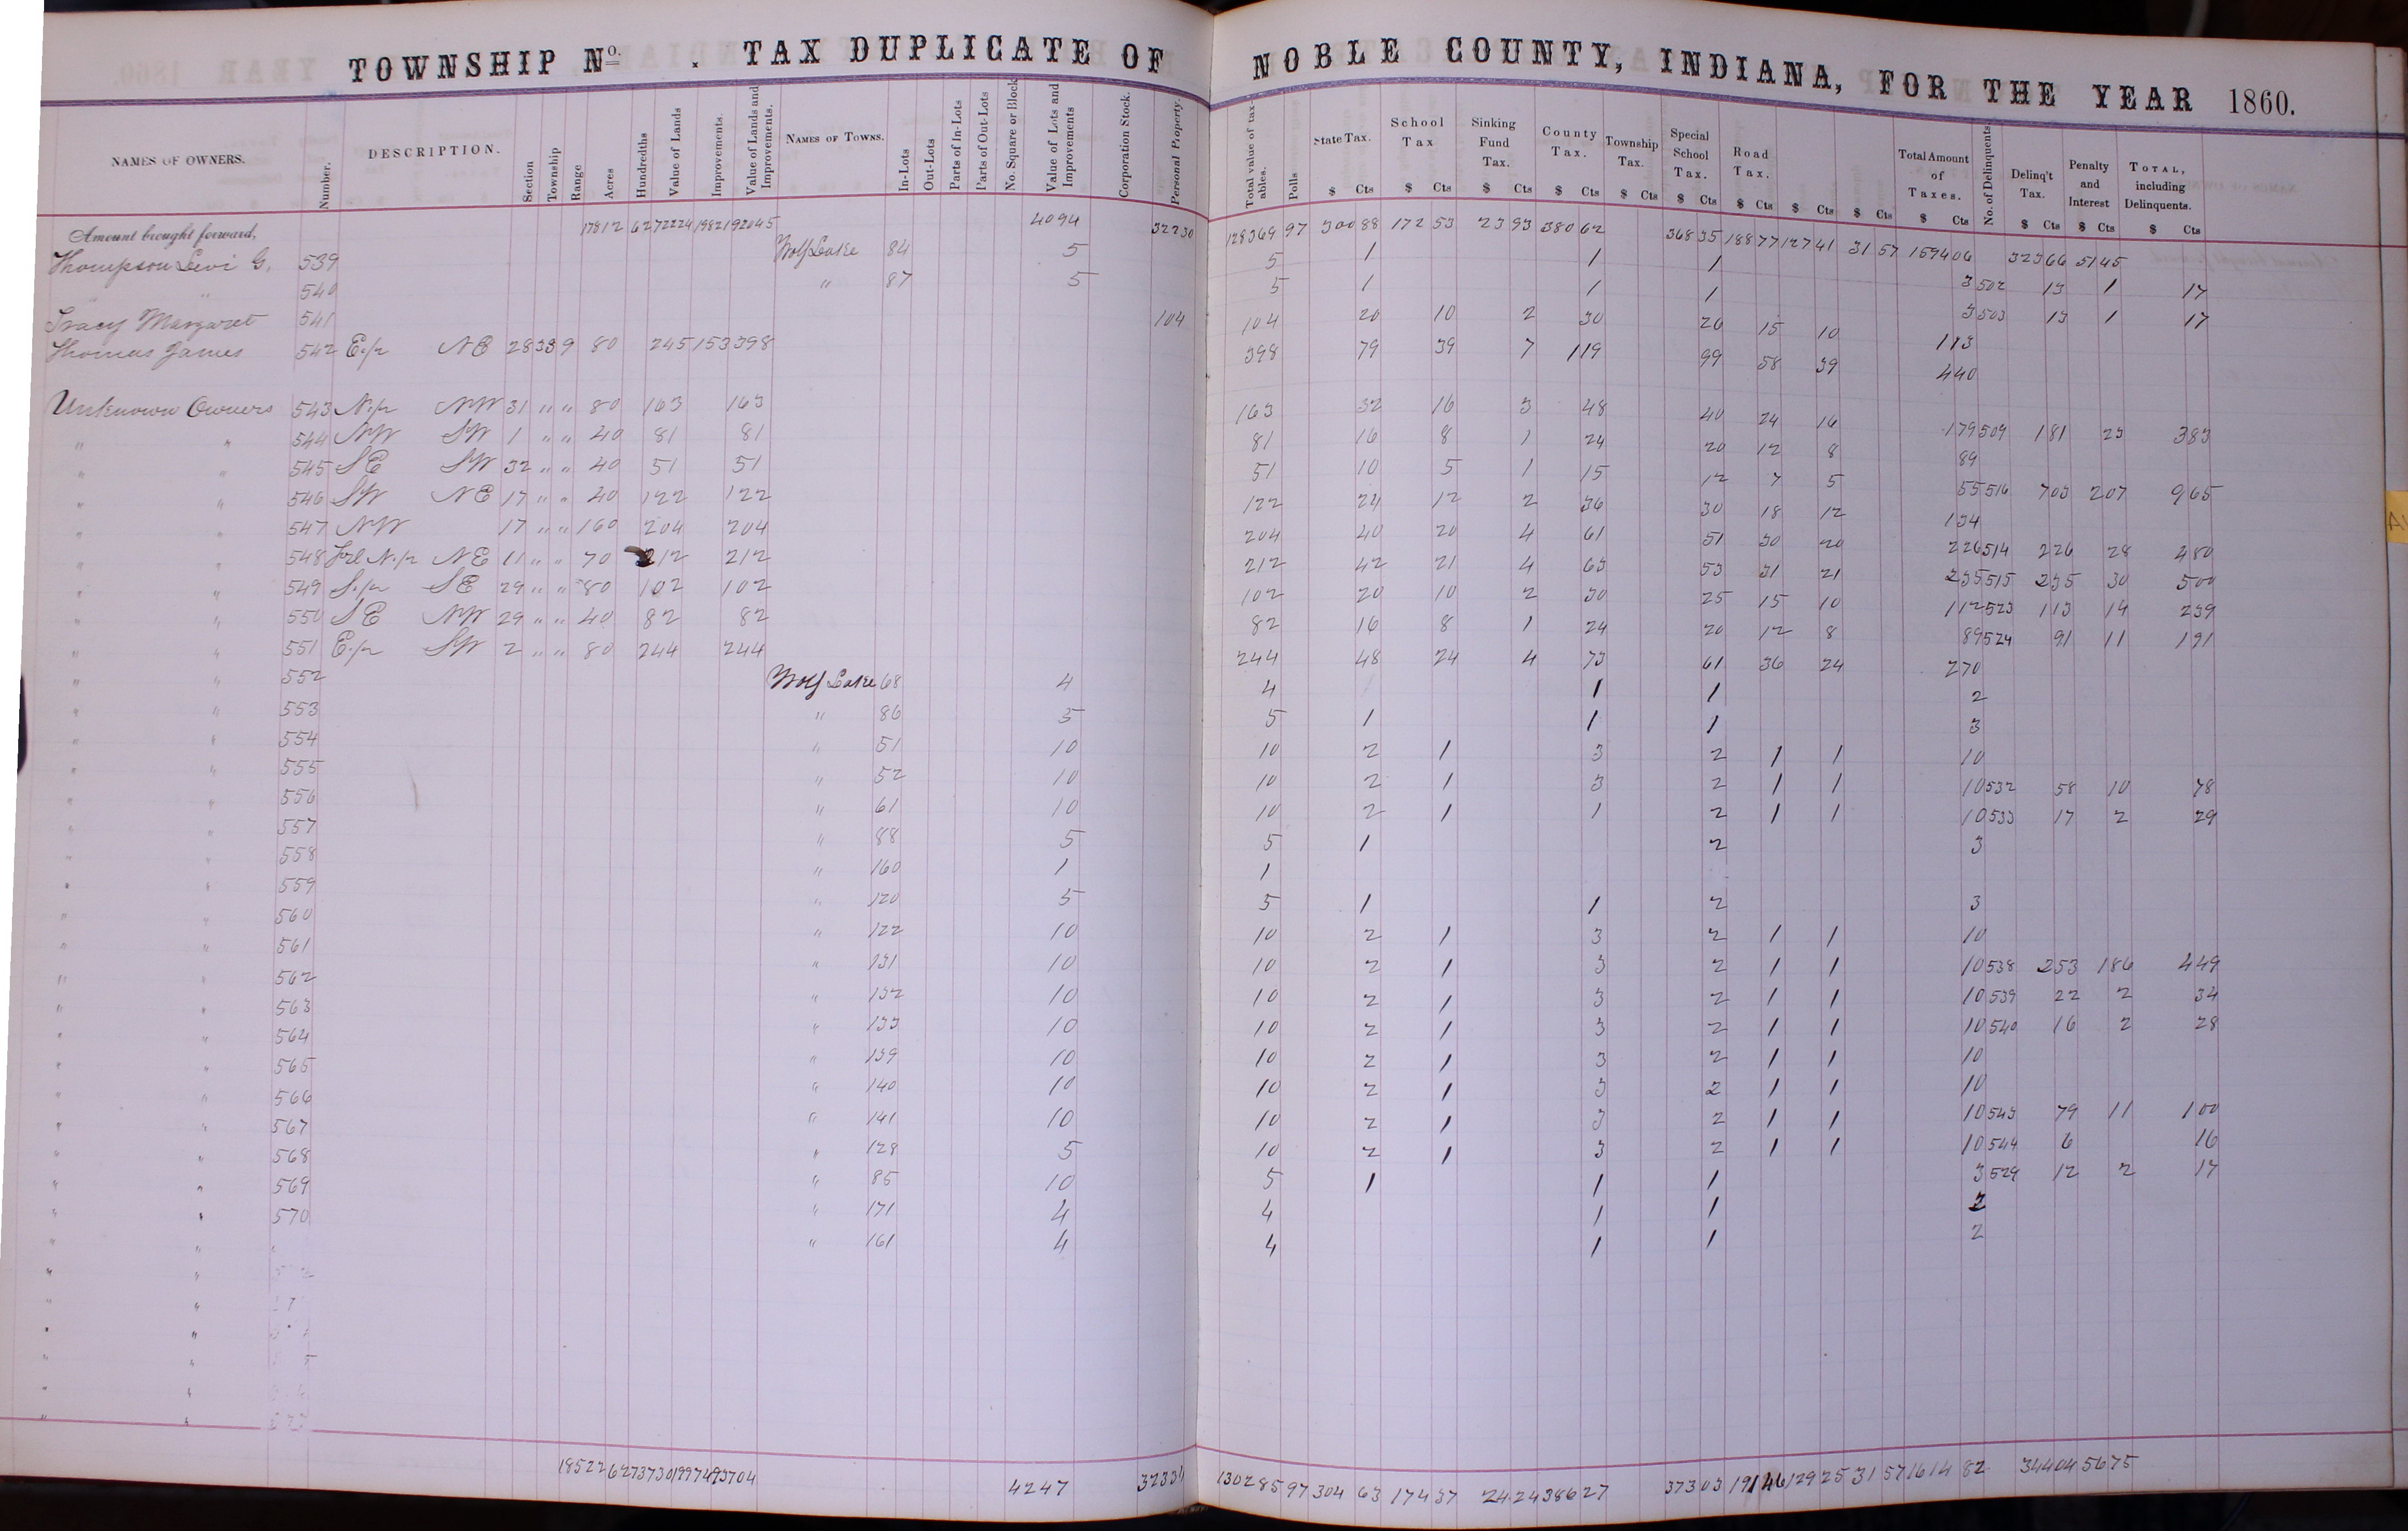 TOWNSHIP No. . TAX DUPLICATE OF NOBLE COUNTY, INDIANA, FOR THE YEAR 1860.
NAMES OF OWNERS. Number. DESCRIPTION. Section Township Range Acres Hundredths Value of Lands Improvements. Value of Lands and Improvements. NAMES OF TOWNS. In-Lots Out-Lots Parts of In-Lots Parts of Out-Lots No. Square or Block Value of Lots and Improvements Corporation Stock. Personal Property. Total value of taxables. Polls State Tax. School Tax Sinking Fund Tax. County Tax. Township Tax. Special School Tax. Road Tax. Total Amount of Taxes. No. of Delinquents Delinq't Tax. Penalty and Interest TOTAL, including Delinquents.
$ Cts $ Cts $ Cts $ Cts $ Cts $ Cts $ Cts $ Cts $ Cts $ Cts $ Cts $ Cts $ Cts
Amount brought forward, 17812 62 72224 19821 92045 4094 32230 128369 97 300 88 172 53 23 93 380 62 368 35 188 77 127 41 31 57 1594 06 323 66 51 45
Thompson Levi G. 539 Wolf Lake 84 5 5 1 1 1 3 502 13 1 17
" " 540 " 87 5 5 1 1 1 3 503 13 1 17
Tracy Margaret 541 104 104 20 10 2 30 26 15 10 113
Thomas James 542 E.p NE 28 33 9 80 245 153 398 398 79 39 7 119 99 58 39 440
Unknown Owners 543 N.p NW 31 " " 80 163 163 163 32 16 3 48 40 24 16 179 509 181 23 383
" " 544 NW SW 1 " " 40 81 81 81 16 8 1 24 20 12 8 89
" " 545 SE SW 32 " " 40 51 51 51 10 5 1 15 12 7 5 55 516 703 207 965
" " 546 SW NE 17 " " 40 122 122 122 24 12 2 36 30 18 12 134
" " 547 NW 17 " " 160 204 204 204 40 20 4 61 51 30 20 226 514 226 28 480
" " 548 Frl N.p NE 11 " " 70 212 212 212 42 21 4 63 53 31 21 235 515 235 30 500
" " 549 S.p SE 29 " " 80 102 102 102 20 10 2 30 25 15 10 112 523 113 14 239
" " 550 SE NW 29 " " 40 82 82 82 16 8 1 24 20 12 8 89 524 91 11 191
" " 551 E.p SW 2 " " 80 244 244 244 48 24 4 73 61 36 24 270
" " 552 Wolf Lake 68 4 4 1 1 2
" " 553 " 86 5 5 1 1 1 3
" " 554 " 51 10 10 2 1 3 2 1 1 10
" " 555 " 52 10 10 2 1 3 2 1 1 10 532 58 10 78
" " 556 " 61 10 10 2 1 1 2 1 1 10 533 17 2 29
" " 557 " 88 5 5 1 2 3
" " 558 " 160 1 1
" " 559 " 120 5 5 1 1 2 3
" " 560 " 122 10 10 2 1 3 2 1 1 10
" " 561 " 131 10 10 2 1 3 2 1 1 10 538 253 186 449
" " 562 " 132 10 10 2 1 3 2 1 1 10 539 22 2 34
" " 563 " 133 10 10 2 1 3 2 1 1 10 540 16 2 28
" " 564 " 139 10 10 2 1 3 2 1 1 10
" " 565 " 140 10 10 2 1 3 2 1 1 10
" " 566 " 141 10 10 2 1 3 2 1 1 10 543 79 11 100
" " 567 " 128 5 10 2 1 3 2 1 1 10 544 6 16
" " 568 " 85 10 5 1 1 1 3 529 12 2 17
" " 569 " 171 4 4 1 1 2
" " 570 " 161 4 4 1 1 2
18522 62 73730 19974 93704 4247 32334 130285 97 304 63 174 37 24 24 386 27 373 03 191 46 129 25 31 57 1614 82 344 04 56 75